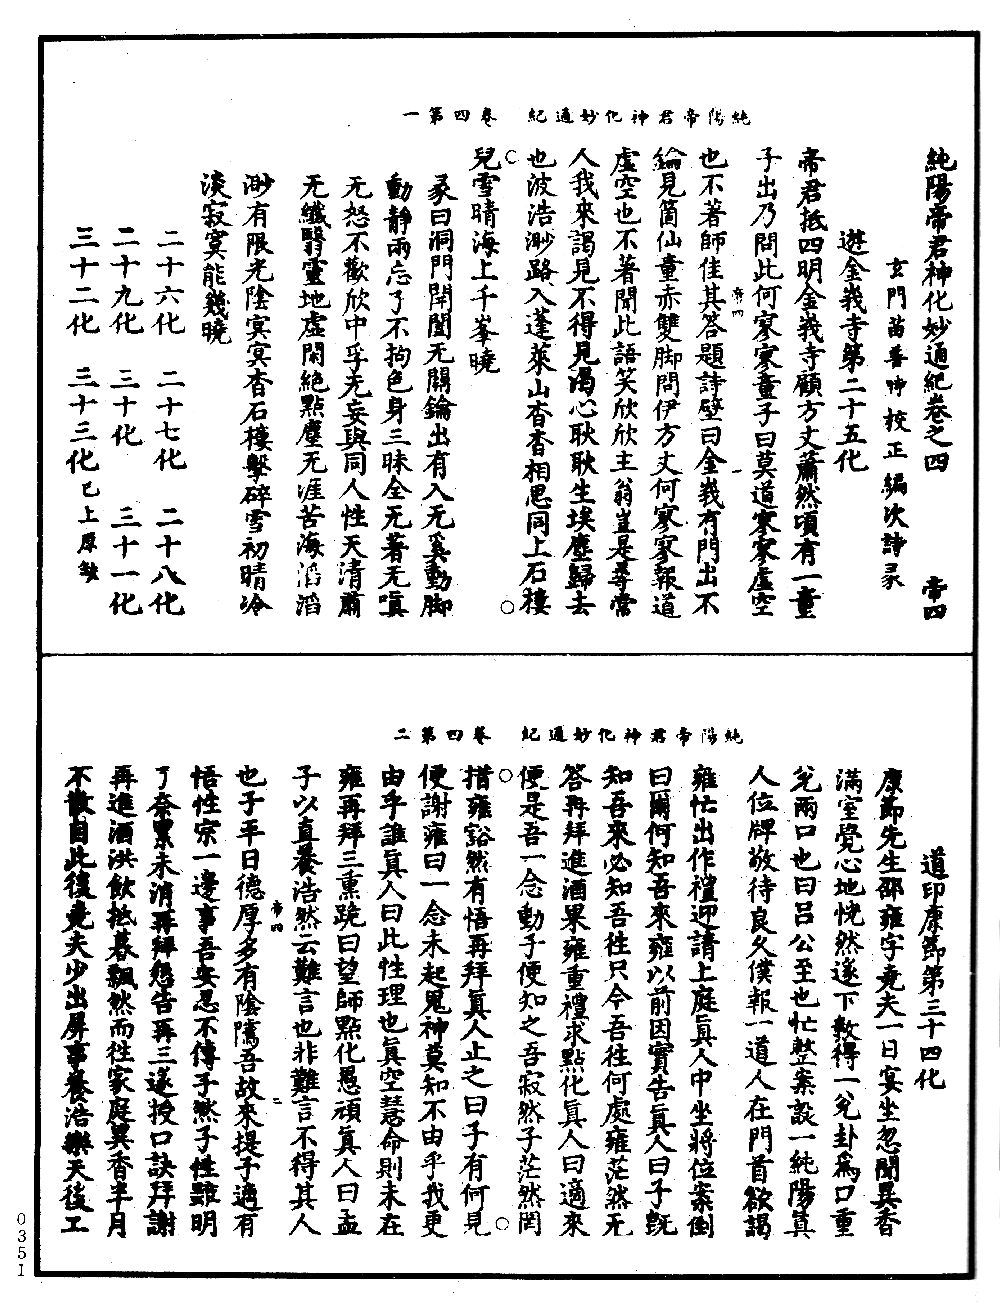 純陽帝君神化妙通紀　卷四第一
純陽帝君神化妙通紀卷之四　帝四
玄門苗善時校正編次詩彖
遊金峩寺第二十五化
帝君抵四明金峩寺顧方丈蕭然頃有一童
子出乃問此何寥寥童子曰莫道寥寥虛空
也不著師佳其答題詩壁曰金峩有門出不
鑰見箇仙童赤雙脚問伊方丈何寥寥報道
虛空也不著聞此語笑欣欣主翁豈是尋常
人我來謁見不得見渴心耿耿生埃塵歸去
也波浩渺路入蓬萊山杳杳相思同上石樓
○　○
兒雪晴海上千峯曉
彖曰洞門開闔无關鑰出有入无奚動脚
動靜兩忘了不拘色身三昧全无著无嗔
无怒不歡欣中孚无妄與同人性天清肅
无纖翳靈地虛閑絶點塵无涯苦海滔滔
渺有限光陰冥冥杳石樓擊碎雪初晴冷
淡寂寞能幾曉
二十六化　二十七化　二十八化
二十九化　三十化　三十一化
三十二化　三十三化已上原缺
帝四
一
純陽帝君神化妙通紀　卷四第二
道印康節第三十四化
康節先生邵雍字堯夫一日宴坐忽聞異香
滿室覺心地恍然遂下數得一兊卦爲口重
兊兩口也曰呂公至也忙整案設一純陽真
人位牌敬待良久僕報一道人在門首欲謁
雍忙出作禮迎請上庭眞人中坐將位案倒
曰爾何知吾來雍以前因實告眞人曰子既
知吾來必知吾徃只今吾徃何處雍茫然无
答再拜進酒果雍重禮求點化眞人曰適來
便是吾一念動子便知之吾寂然子茫然罔
○　○
措雍豁然有悟再拜眞人止之曰子有何見
便謝雍曰一念未起鬼神莫知不由乎我更
由乎誰眞人曰此性理也眞空慧命則未在
雍再拜三熏跪曰望師點化愚頑眞人曰孟
子以直養浩然云難言也非難言不得其人
也子平日德厚多有陰隲吾故來提子適有
悟性宗一邊事吾安忍不傳子然子性雖明
了奈累未消再拜懇告再三遂授口訣拜謝
再進酒洪飲抵暮飄然而徃家庭異香半月
不散自此後堯夫少出屏事養浩樂天後工
帝四
二
0351